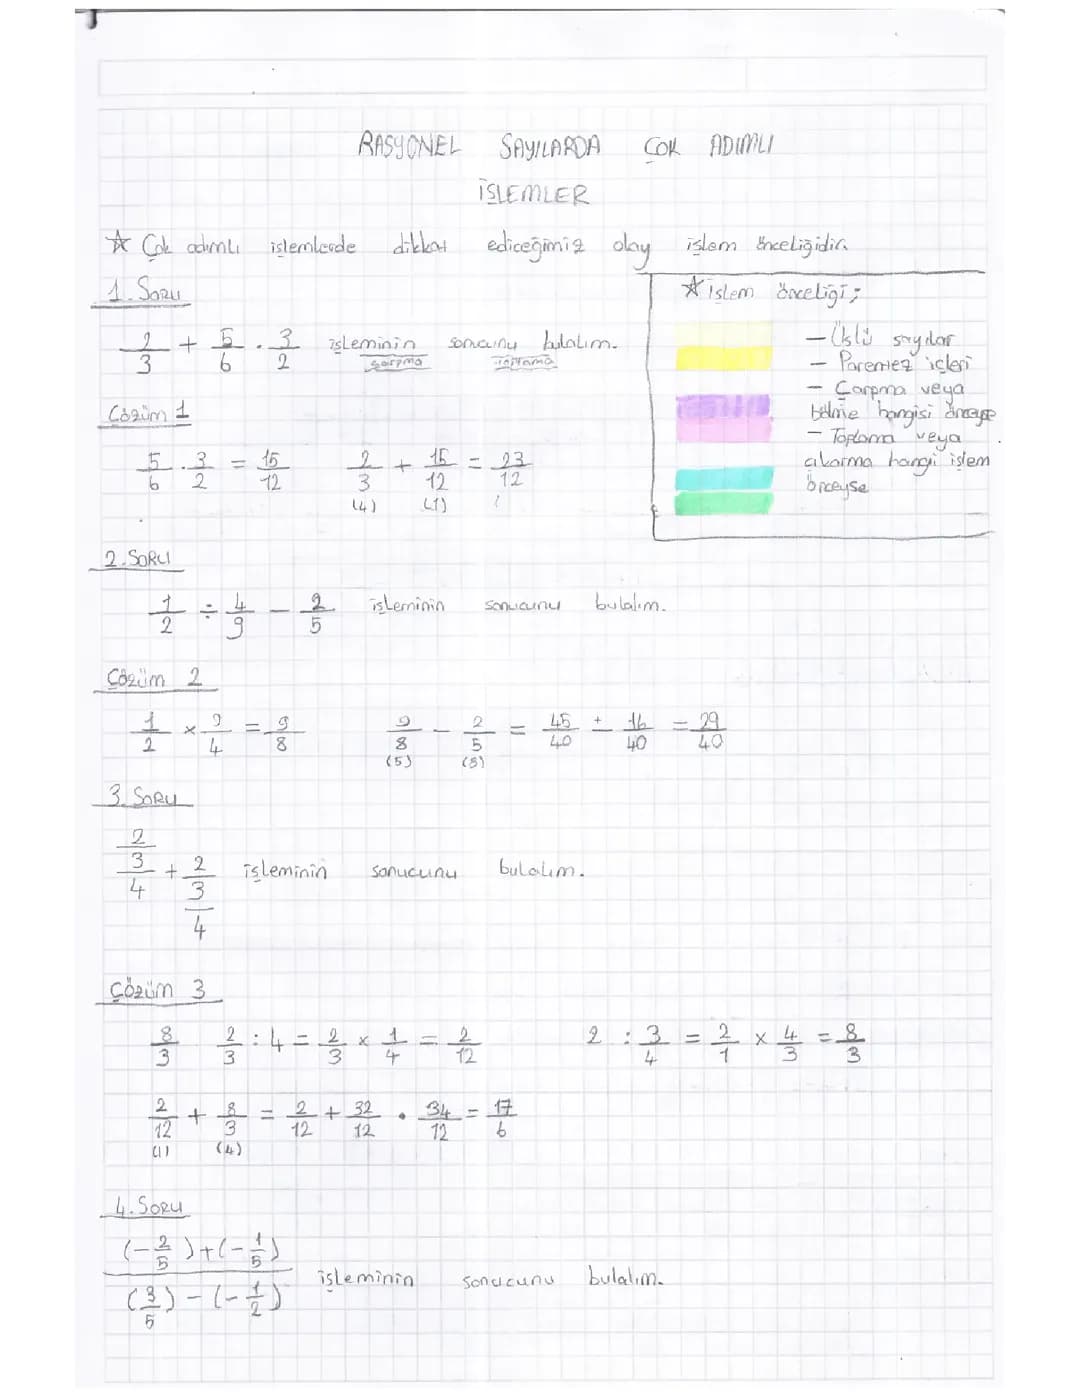 RASYONEL SAYILARDA ÇOK ADIMLI
İŞLEMLER
☆ Çok adımlı işlemlerde dikkat ediceğimiz olay işlem önceliğidir.
1. SORU
2/3 + 5/6 . 3/2 işleminin sonucunu bulalım.
çarpma toplama
☆ işlem önceliği;
- Üslü sayılar
- Parentez içleri
- Çarpma veya
bölme hangisi önceyse
- Toplama veya
çıkarma hangi işlem
önceyse
Çözüm 1
5/6 . 3/2 = 15/12 2/3 + 15/12 = 23/12
(4) (1)
2. SORU
1/2 ÷ 4/9 - 2/5 işleminin sonucunu bulalım.
Çözüm 2
1/2 × 9/4 = 9/8 9/8 - 2/5 = 45/40 ÷ 16/40 = 29/40
(5) (8)
3. SORU
2/3/4 + 2/3/4 işleminin sonucunu bulalım.
Çözüm 3
8/3 2/3 : 4 = 2/3 × 1/4 = 2/12 2 : 3/4 = 2/1 × 4/3 = 8/3
2/12 + 8/3 = 2/12 + 32/12 . 34/12 = 17/6
(1) (4)
4. SORU
(-2/5) + (-1/5)
(3/5) - (-1/2) işleminin sonucunu bulalım.